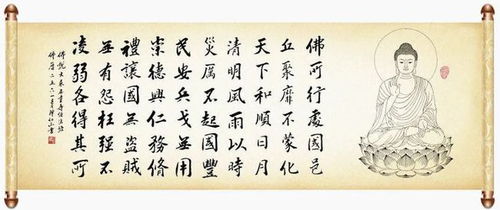 佛所行處國邑
丘聚靡不蒙化
天下和順日月
清明風雨以時
災厲不起國豐
民安兵戈無用
崇德興仁務修
禮讓國無盜賊
無有怨枉強不
凌弱各得其所
佛說大乘無量壽經
佛曆二五六一年